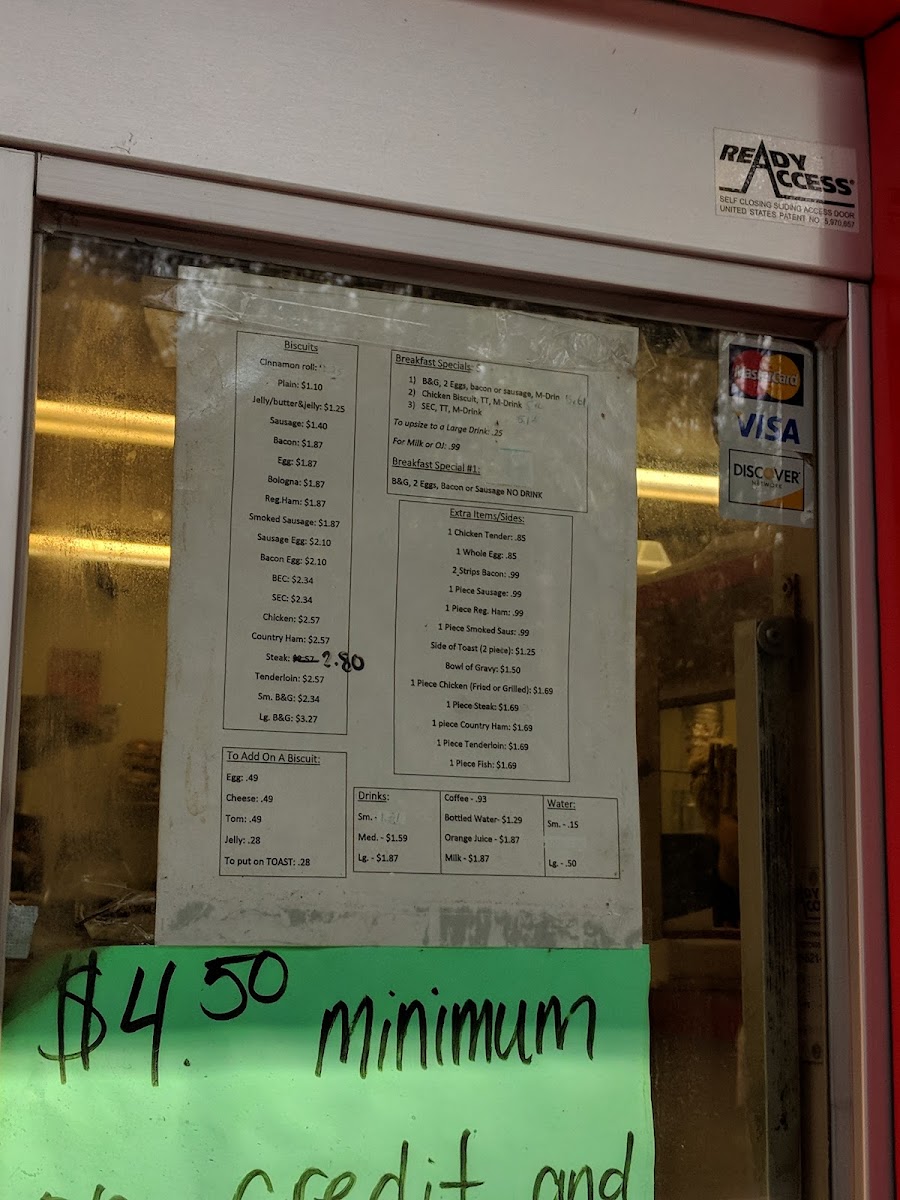 READY ACCESS®
SELF CLOSING SLIDING ACCESS DOOR
UNITED STATES PATENT NO. 5,970,667
Biscuits
Cinnamon roll:
Plain: $1.10
Jelly/butter&jelly: $1.25
Sausage: $1.40
Bacon: $1.87
Egg: $1.87
Bologna: $1.87
Reg.Ham: $1.87
Smoked Sausage: $1.87
Sausage Egg: $2.10
Bacon Egg: $2.10
BEC: $2.34
SEC: $2.34
Chicken: $2.57
Country Ham: $2.57
Steak: 2.80
Tenderloin: $2.57
Sm. B&G: $2.34
Lg. B&G: $3.27
To Add On A Biscuit:
Egg: .49
Cheese: .49
Tom: .49
Jelly: .28
To put on TOAST: .28
Breakfast Specials:
1) B&G, 2 Eggs, bacon or sausage, M-Drin
2) Chicken Biscuit, TT, M-Drink
3) SEC, TT, M-Drink
To upsize to a Large Drink: .25
For Milk or OJ: .99
Breakfast Special #1:
B&G, 2 Eggs, Bacon or Sausage NO DRINK
Extra Items/Sides:
1 Chicken Tender: .85
1 Whole Egg: .85
2 Strips Bacon: .99
1 Piece Sausage: .99
1 Piece Reg. Ham: .99
1 Piece Smoked Saus: .99
Side of Toast (2 piece): $1.25
Bowl of Gravy: $1.50
1 Piece Chicken (Fried or Grilled): $1.69
1 Piece Steak: $1.69
1 piece Country Ham: $1.69
1 Piece Tenderloin: $1.69
1 Piece Fish: $1.69
Drinks:
Sm. -
Med. - $1.59
Lg. - $1.87
Coffee - .93
Bottled Water- $1.29
Orange Juice - $1.87
Milk - $1.87
Water:
Sm. - .15
Lg. - .50
mastercard
VISA
DISCOVER
NETWORK
$4.50 minimum
on credit and